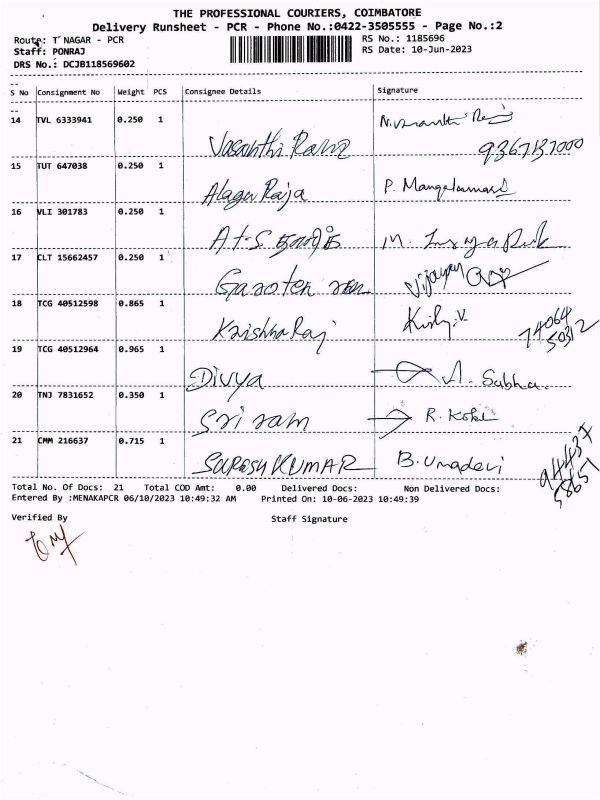 THE PROFESSIONAL COURIERS, COIMBATORE
Delivery Runsheet - PCR - Phone No.:0422-3505555 - Page No.:2
Route: T NAGAR - PCR RS No.: 1185696
Staff: PONRAJ RS Date: 10-Jun-2023
DRS No.: DCJB118569602
S No Consignment No Weight PCS Consignee Details Signature
14 TVL 6333941 0.250 1
Vasanthi 9367137000
15 TUT 647038 0.250 1
Alaga Raja P. Mangalammal
16 VLI 301783 0.250 1
17 CLT 15662457 0.250 1
Vijayan
18 TCG 40512598 0.865 1
Krishna Raj 74064 50312
19 TCG 40512964 0.965 1
Divya A. Subha.
20 TNJ 7831652 0.350 1
Sri ram R.
21 CMM 216637 0.715 1
SURESH KUMAR B. Umadevi 94437 58657
Total No. Of Docs: 21 Total COD Amt: 0.00 Delivered Docs: Non Delivered Docs:
Entered By :MENAKAPCR 06/10/2023 10:49:32 AM Printed On: 10-06-2023 10:49:39
Verified By Staff Signature